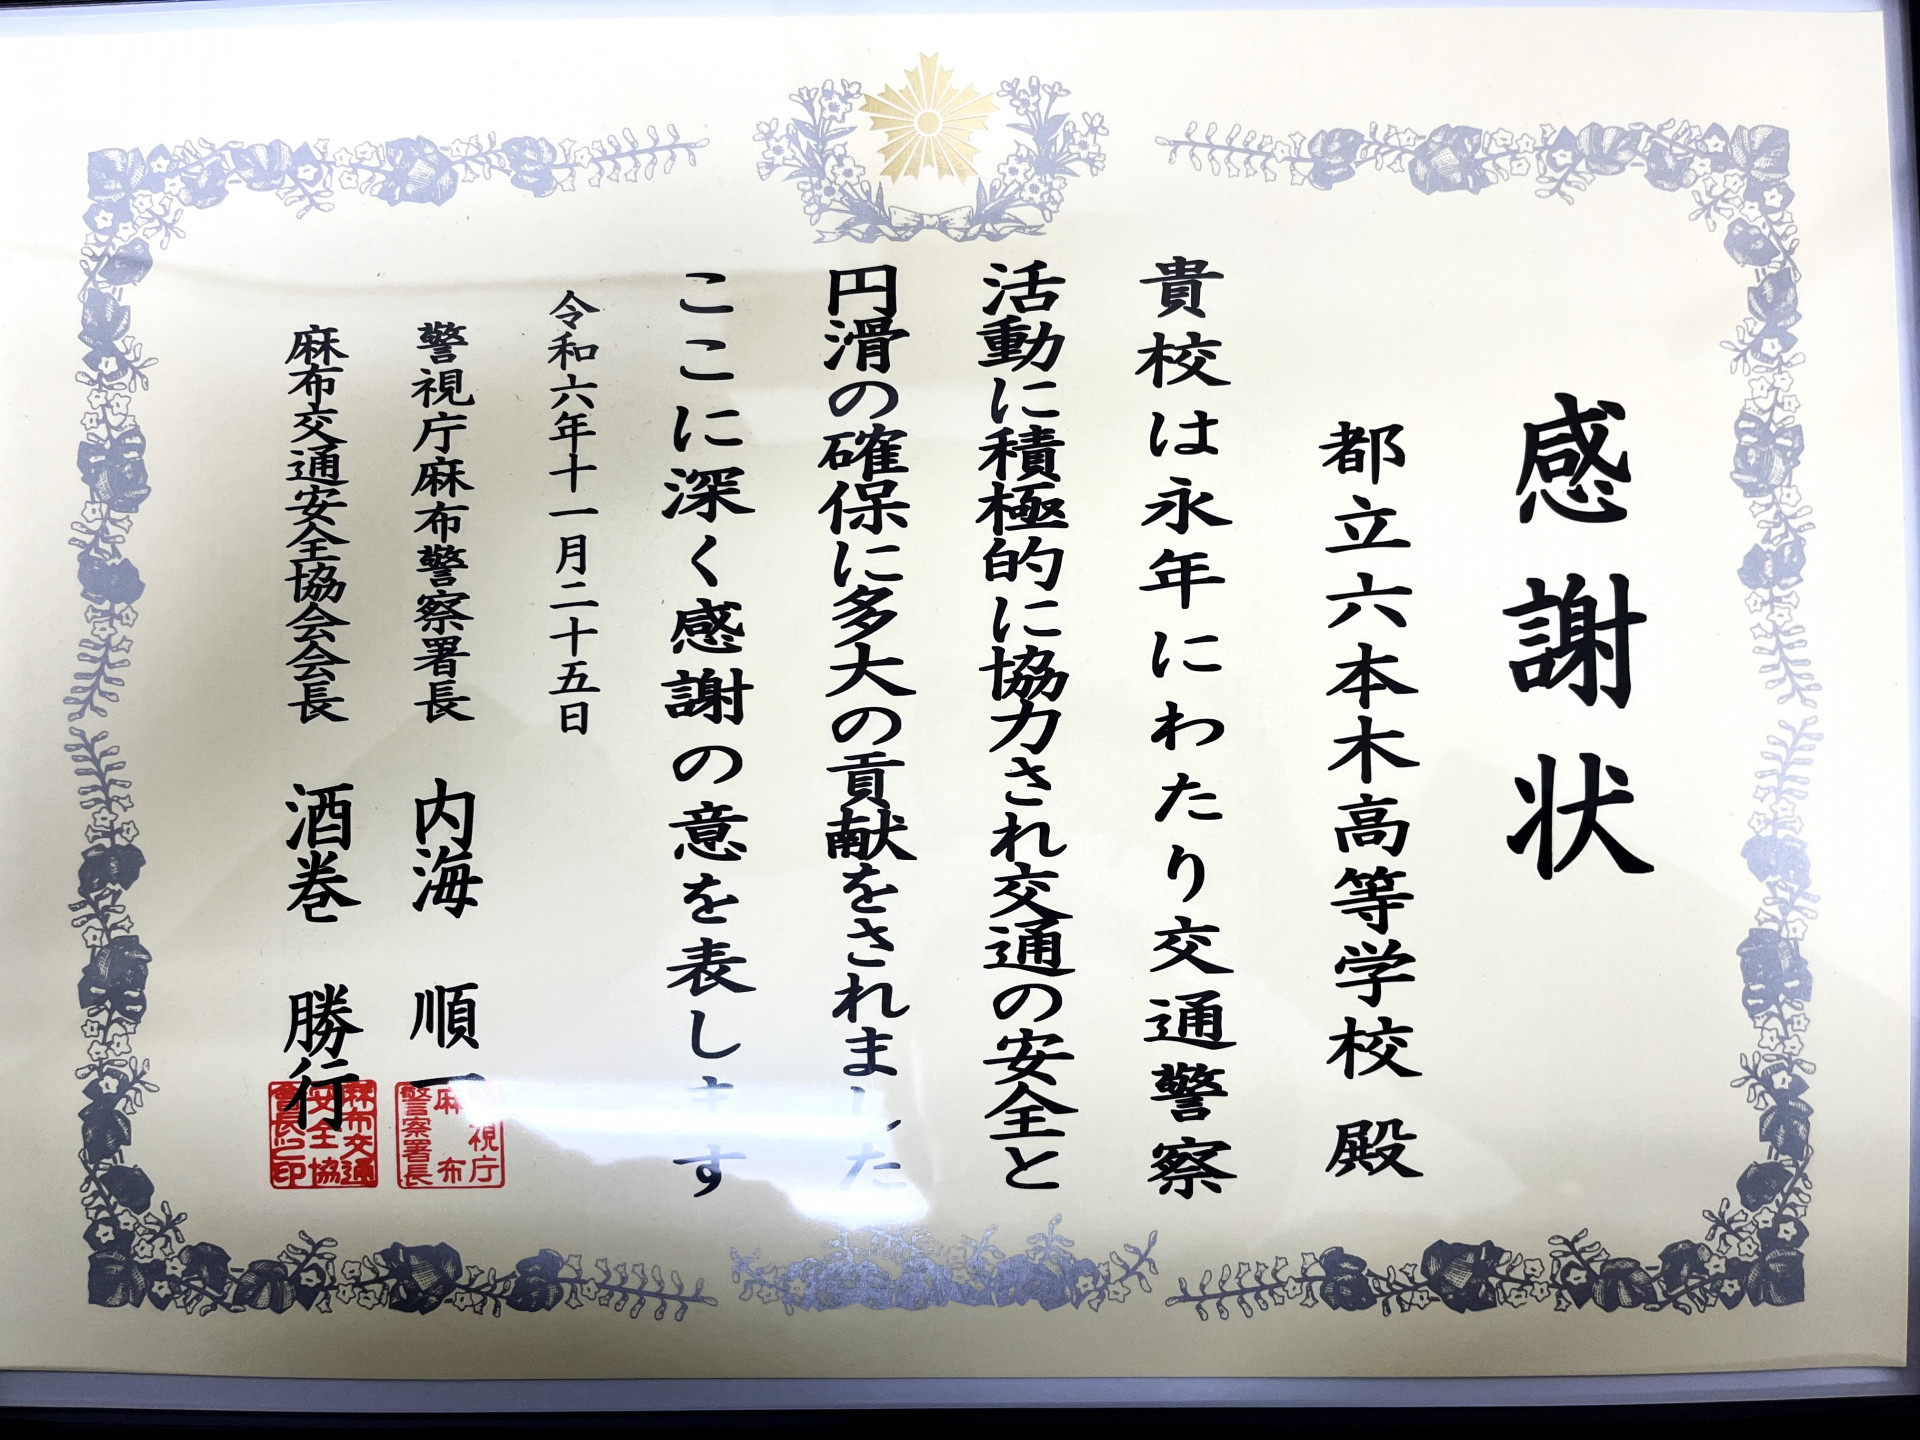 感謝状
都立六本木高等学校 殿
貴校は永年にわたり交通警察
活動に積極的に協力され交通の安全と
円滑の確保に多大の貢献をされました
ここに深く感謝の意を表します
令和六年十一月二十五日
警視庁麻布警察署長 内海 順一
警視庁麻布警察署長
麻布交通安全協会会長 酒巻 勝行
麻布交通安全協會長之印